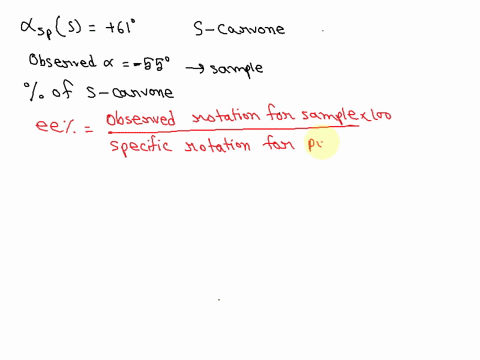 αsp(S) = +61° S-carvone
Observed α = -55° → sample
% of S-carvone
ee% = Observed rotation for sample x 100
specific rotation for p